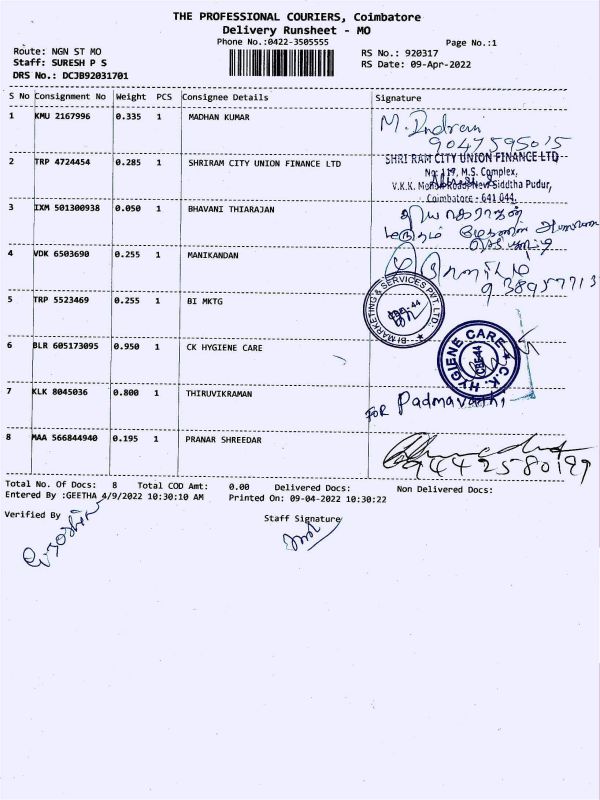 THE PROFESSIONAL COURIERS, Coimbatore
Delivery Runsheet - MO
Phone No.:0422-3505555
Page No.:1
Route: NGN ST MO
RS No.: 920317
Staff: SURESH P S
RS Date: 09-Apr-2022
DRS No.: DCJB92031701
S No Consignment No Weight PCS Consignee Details Signature
1 KMU 2167996 0.335 1 MADHAN KUMAR
M. Indrani
9047595015
2 TRP 4724454 0.285 1 SHRIRAM CITY UNION FINANCE LTD
SHRI RAM CITY UNION FINANCE LTD
No: 117, M.S. Complex,
V.K.K. Road, New Siddtha Pudur,
Coimbatore - 641 044.
3 IXM 501300938 0.050 1 BHAVANI THIARAJAN
தியாகராஜன்
4 VDK 6503690 0.255 1 MANIKANDAN
5 TRP 5523469 0.255 1 BI MKTG
BI MARKETING & SERVICES PVT. LTD.
6 BLR 605173095 0.950 1 CK HYGIENE CARE
C.K. HYGIENE CARE
CBE-44
7 KLK 8045036 0.800 1 THIRUVIKRAMAN
FOR Padmavathi
8 MAA 566844940 0.195 1 PRANAR SHREEDAR
Total No. Of Docs: 8 Total COD Amt: 0.00 Delivered Docs: Non Delivered Docs:
Entered By :GEETHA 4/9/2022 10:30:10 AM Printed On: 09-04-2022 10:30:22
Verified By
Staff Signature